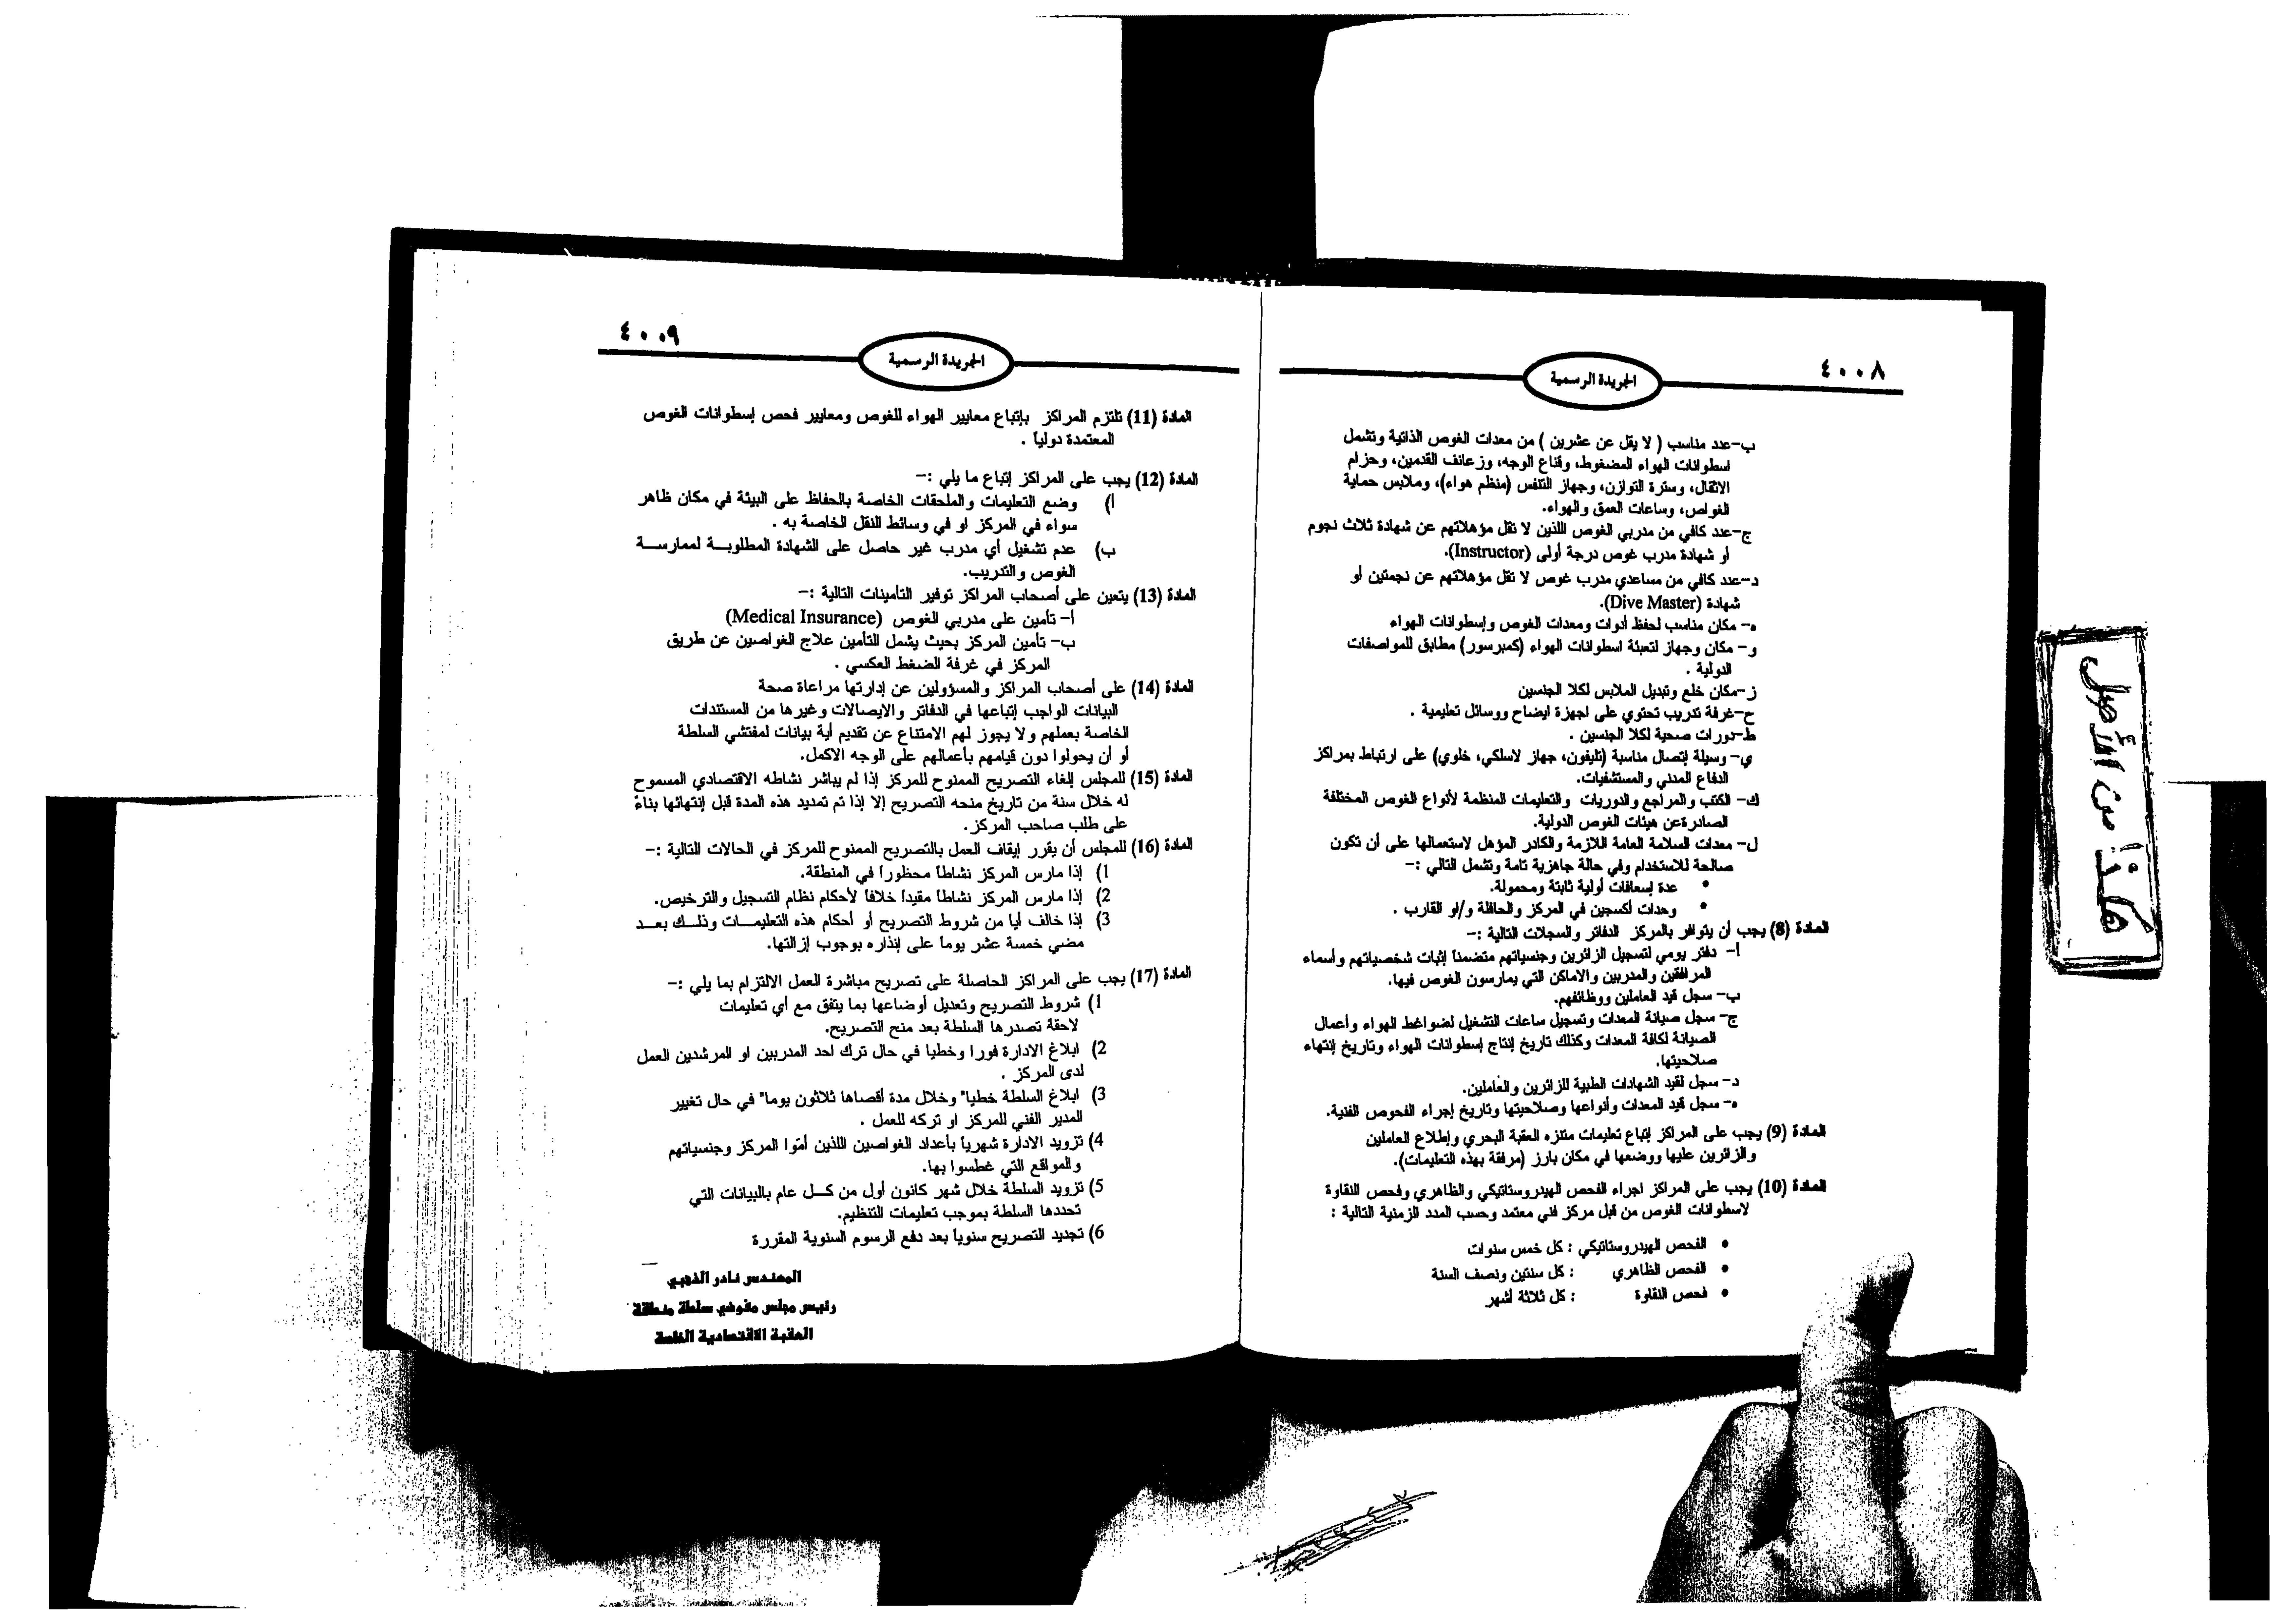 ٤٠٠٨
الجريدة الرسمية
ب-عدد مناسب ( لا يقل عن عشرين ) من معدات الغوص الذاتية وتشمل
اسطوانات الهواء المضغوط، وقناع الوجه، وزعانف القدمين، وحزام
الاثقال، وسترة التوازن، وجهاز التنفس (منظم هواء)، وملابس حماية
الغواص، وساعات العمق والهواء.
ج-عدد كافي من مدربي الغوص اللذين لا تقل مؤهلاتهم عن شهادة ثلاث نجوم
أو شهادة مدرب غوص درجة أولى (Instructor).
د-عدد كافي من مساعدي مدرب غوص لا تقل مؤهلاتهم عن نجمتين أو
شهادة (Dive Master).
ه- مكان مناسب لحفظ أدوات ومعدات الغوص وإسطوانات الهواء
و- مكان وجهاز لتعبئة اسطوانات الهواء (كمبرسور) مطابق للمواصفات
الدولية .
ز-مكان خلع وتبديل الملابس لكلا الجنسين
ح-غرفة تدريب تحتوي على اجهزة ايضاح ووسائل تعليمية .
ط-دورات صحية لكلا الجنسين .
ي- وسيلة إتصال مناسبة (تليفون، جهاز لاسلكي، خلوي) على ارتباط بمراكز
الدفاع المدني والمستشفيات.
ك- الكتب والمراجع والدوريات والتعليمات المنظمة لأنواع الغوص المختلفة
الصادرةعن هيئات الغوص الدولية.
ل- معدات السلامة العامة اللازمة والكادر المؤهل لاستعمالها على أن تكون
صالحة للاستخدام وفي حالة جاهزية تامة وتشمل التالي :-
• عدة إسعافات أولية ثابتة ومحمولة.
• وحدات أكسجين في المركز والحافلة و/او القارب .
المادة (8) يجب أن يتوافر بالمركز الدفاتر والسجلات التالية :-
أ- دفتر يومي لتسجيل الزائرين وجنسياتهم متضمناً إثبات شخصياتهم وأسماء
المرافقين والمدربين والاماكن التي يمارسون الغوص فيها.
ب- سجل قيد العاملين ووظائفهم.
ج- سجل صيانة المعدات وتسجيل ساعات التشغيل لضواغط الهواء وأعمال
الصيانة لكافة المعدات وكذلك تاريخ إنتاج إسطوانات الهواء وتاريخ إنتهاء
صلاحيتها.
د- سجل لقيد الشهادات الطبية للزائرين والعاملين.
ه- سجل قيد المعدات وأنواعها وصلاحيتها وتاريخ إجراء الفحوص الفنية.
المادة (9) يجب على المراكز إتباع تعليمات متنزه العقبة البحري وإطلاع العاملين
والزائرين عليها ووضعها في مكان بارز (مرفقة بهذه التعليمات).
المادة (10) يجب على المراكز اجراء الفحص الهيدروستاتيكي والظاهري وفحص النقاوة
لاسطوانات الغوص من قبل مركز فني معتمد وحسب المدد الزمنية التالية :
• الفحص الهيدروستاتيكي : كل خمس سنوات
• الفحص الظاهري : كل سنتين ونصف السنة
• فحص النقاوة : كل ثلاثة أشهر
٤٠٠٩
الجريدة الرسمية
المادة (11) تلتزم المراكز بإتباع معايير الهواء للغوص ومعايير فحص إسطوانات الغوص
المعتمدة دولياً .
المادة (12) يجب على المراكز إتباع ما يلي :-
أ) وضع التعليمات والملحقات الخاصة بالحفاظ على البيئة في مكان ظاهر
سواء في المركز او في وسائط النقل الخاصة به .
ب) عدم تشغيل أي مدرب غير حاصل على الشهادة المطلوبة لممارسة
الغوص والتدريب.
المادة (13) يتعين على أصحاب المراكز توفير التأمينات التالية :-
أ- تأمين على مدربي الغوص (Medical Insurance)
ب- تأمين المركز بحيث يشمل التأمين علاج الغواصين عن طريق
المركز في غرفة الضغط العكسي .
المادة (14) على أصحاب المراكز والمسؤولين عن إدارتها مراعاة صحة
البيانات الواجب إتباعها في الدفاتر والايصالات وغيرها من المستندات
الخاصة بعملهم ولا يجوز لهم الامتناع عن تقديم أية بيانات لمفتشي السلطة
أو أن يحولوا دون قيامهم بأعمالهم على الوجه الاكمل.
المادة (15) للمجلس إلغاء التصريح الممنوح للمركز إذا لم يباشر نشاطه الاقتصادي المسموح
له خلال سنة من تاريخ منحه التصريح إلا إذا تم تمديد هذه المدة قبل إنتهائها بناءً
على طلب صاحب المركز.
المادة (16) للمجلس أن يقرر إيقاف العمل بالتصريح الممنوح للمركز في الحالات التالية :-
1) إذا مارس المركز نشاطاً محظوراً في المنطقة.
2) إذا مارس المركز نشاطاً مقيداً خلافاً لأحكام نظام التسجيل والترخيص.
3) إذا خالف أيا من شروط التصريح أو أحكام هذه التعليمات وذلك بعد
مضي خمسة عشر يوماً على إنذاره بوجوب إزالتها.
المادة (17) يجب على المراكز الحاصلة على تصريح مباشرة العمل الالتزام بما يلي :-
1) شروط التصريح وتعديل أوضاعها بما يتفق مع أي تعليمات
لاحقة تصدرها السلطة بعد منح التصريح.
2) ابلاغ الادارة فورا وخطيا في حال ترك احد المدربين او المرشدين العمل
لدى المركز .
3) ابلاغ السلطة خطيا" وخلال مدة أقصاها ثلاثون يوما" في حال تغيير
المدير الفني للمركز او تركه للعمل .
4) تزويد الادارة شهرياً بأعداد الغواصين اللذين أمّوا المركز وجنسياتهم
والمواقع التي غطسوا بها.
5) تزويد السلطة خلال شهر كانون أول من كل عام بالبيانات التي
تحددها السلطة بموجب تعليمات التنظيم.
6) تجديد التصريح سنوياً بعد دفع الرسوم السنوية المقررة
المهندس نادر الذهبي
رئيس مجلس مفوضي سلطة منطقة
العقبة الاقتصادية الخاصة
هكذا من الأصل